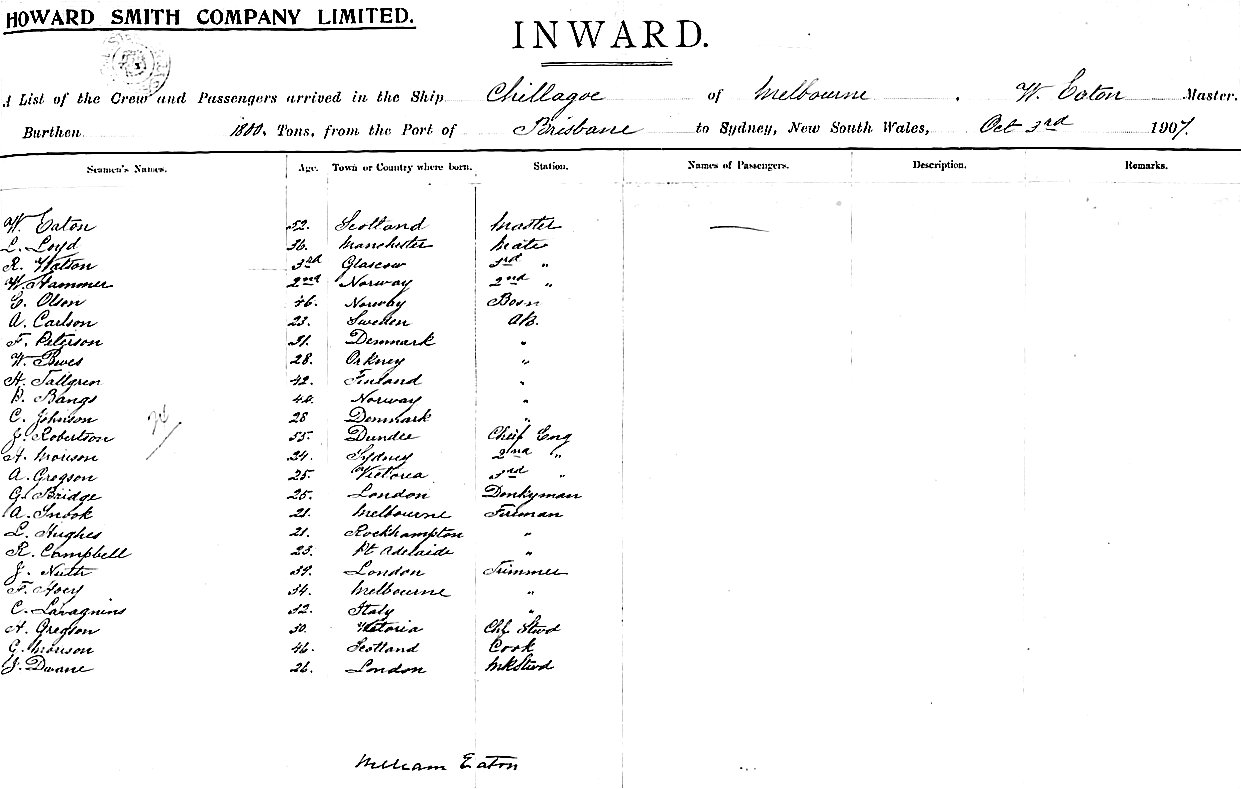 HOWARD SMITH COMPANY LIMITED.
INWARD.
A List of the Crew and Passengers arrived in the Ship Chillagoe of Melbourne, W. Eaton Master.
Burthen 1800 Tons, from the Port of Brisbane to Sydney, New South Wales, Oct 3rd 1907.
Seamen's Names. Age. Town or Country where born. Station. Names of Passengers. Description. Remarks.
W. Eaton 52. Scotland Master
L. Loyd 36. Manchester Mate
R. Watson 3rd Glascow 3rd "
W. Hammer 2nd Norway 2nd "
C. Olson 46. Norway Bosn
A. Carlson 23. Sweden AB.
F. Peterson 31. Denmark "
W. 28. Orkney "
H. Tallgren 42. Finland "
Bangs 40. Norway "
C. Johnson 28 Denmark "
J. Robertson 55. Dundee Cheif Eng
Morison 24. Sydney 2nd "
A. Gregson 25. Victoria 3rd "
G. Bridge 25. London Donkyman
A. Snook 21. Melbourne Fireman
L. Hughes 21. Rockhampton "
R. Campbell 23. Pt Adelaide "
J. Nuth 39. London Trimmer
F. Hoey 34. Melbourne "
C. Lavagnins 32. Italy "
H. Gregson 30. Victoria Chf Stwd
G. Morison 46. Scotland Cook
J. Dwane 26. London Stwd
William Eaton